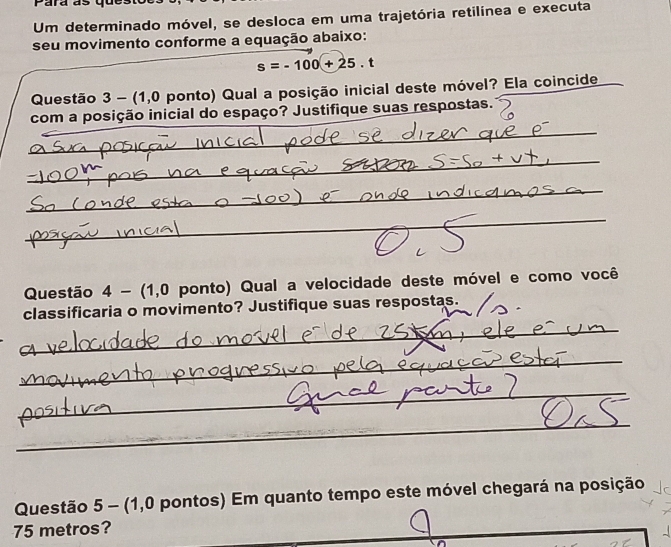 Um determinado móvel, se desloca em uma trajetória retilínea e executa
seu movimento conforme a equação abaixo:
s = - 100 + 25 . t
Questão 3 – (1,0 ponto) Qual a posição inicial deste móvel? Ela coincide
com a posição inicial do espaço? Justifique suas respostas. ?
a sua posição inicial pode se dizer que é
-100m, pois na equação S=So + vt,
So (onde esta o -100) é onde indicamos a
posição inicial
0,5
Questão 4 – (1,0 ponto) Qual a velocidade deste móvel e como você
classificaria o movimento? Justifique suas respostas.
m/s.
a velocidade do movel é de 25 km, ele é um
movimento progressivo pela equação estar
positiva
Qual parte?
0,5
Questão 5 – (1,0 pontos) Em quanto tempo este móvel chegará na posição
75 metros?